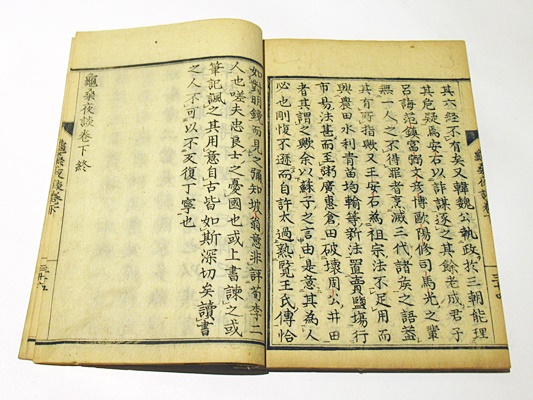 其六經不有矣又韓魏公執政於三朝能理
其危疑爲安石以詐謀逐之其餘老成君子
呂誨范鎮富弼文彥博歐陽修司馬光之輩
無一人之不得罪者烹滅三代諸矦之語蓋
其有所指歟又王安石為祖宗法不足用而
興農田水利青苗均輸等新法置賣鹽塲行
市易法甚而至粥廣惠倉田破壞周公井田
者其謂之歟余以蘇子之言由是意其為人
必也剛愎不遜而自許太過熟覽王氏傳恰
如對明鏡而見之彌知坡翁意非評荀李二
人也嗟夫忠良士之憂國也或上書諫之或
筆記諷之其用意自古皆如斯深切矣讀書
之人不可以不亥復丁寧也
龜桑夜談卷下終
龜桑夜談卷下